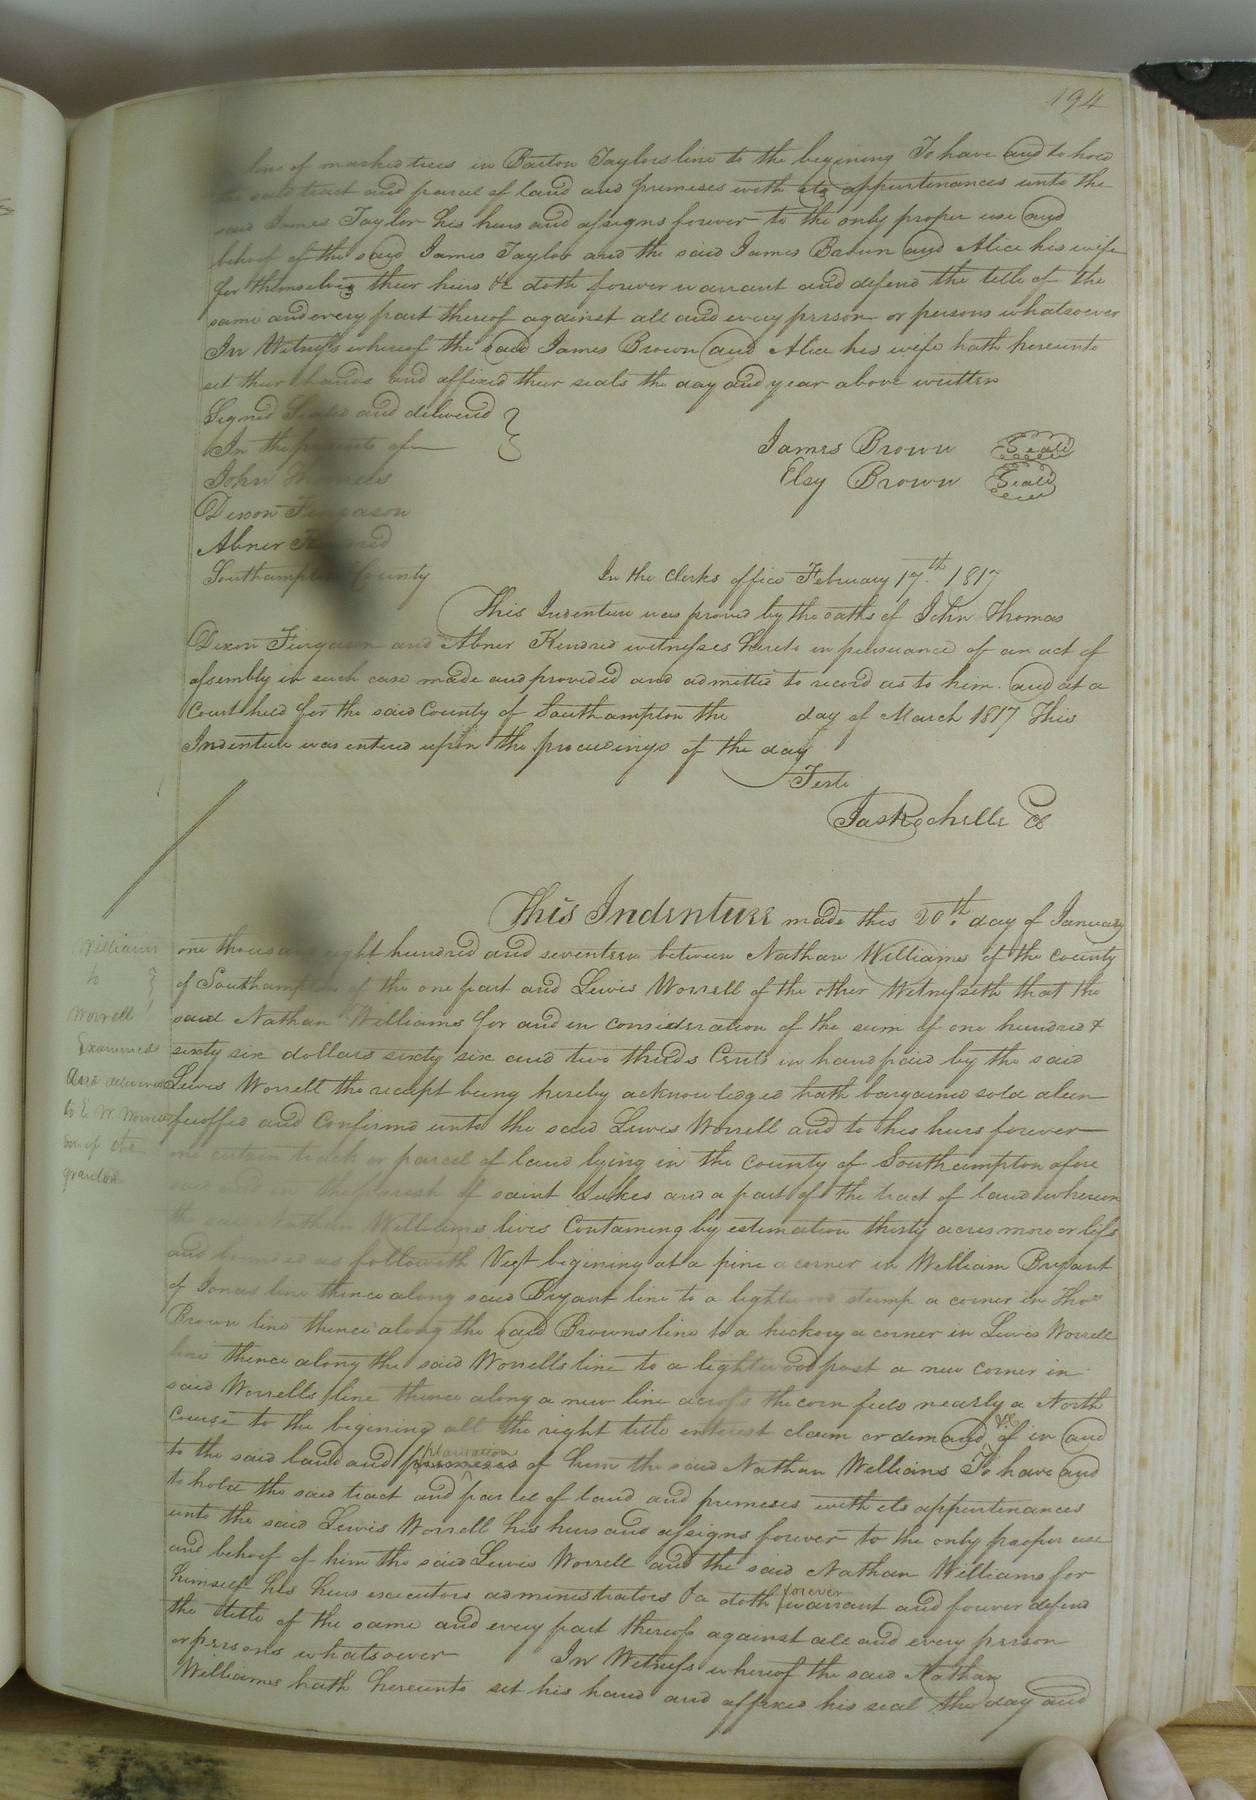 194
line of marked trees in Barton Taylors line to the begining To have and to hold
the said tract and parcel of land and premeses with its appurtenances unto the
said James Taylor his heirs and assigns forever to the only proper use and
behoof of the said James Taylor and the said James Brown and Alice his wife
for themselves their heirs &c doth forever warrant and defend the title of the
same and every part thereof against all and every person or persons whatsoever
In Witness whereof the said James Brown and Alice his wife hath hereunto
set their hands and affixed their seals the day and year above written
Signed Sealed and delivered
In the presents of
James Brown Seal
John
Elsy Brown Seal
Dixon Ferguson
Abner
Southampton County
In the Clerks office February 17th. 1817
This Indenture was proved by the oaths of John Thomas
Dixon Ferguson and Abner Kindred witnesses hereto in persuance of an act of
assembly in such case made and provided and admitted to record as to him. and at a
Court held for the said County of Southampton the day of March 1817 This
Indenture was entered upon the proceedings of the day
Teste
Jas Rochelle Cl
This Indenture made this 20th. day of January
one thousand eight hundred and seventeen between Nathan Williams of the county
of Southampton of the one part and Lewis Worrell of the other Witnesseth that the
said Nathan Williams for and in consideration of the sum of one hundred &
sixty six dollars sixty six and two thirds Cents in hand paid by the said
Lewis Worrell the receipt being hereby acknowledged hath bargained sold alien
feoffed and Confirmd unto the said Lewis Worrell and to his heirs forever
one certain track or parcel of land lying in the county of Southampton afore
said and in the parish of saint Lukes and a part of the tract of land whereon
the said Nathan Williams lives Containing by estimation thirty acres more or less
and bounded as followeth Viz begining at a pine a corner in William Bryant
of Jonas line thence along said Bryant line to a lightwood stump a corner in Thos
Brown line thence along the said Browns line to a hickory a corner in Lewis Worrell
line thence along the said Worrells line to a lightwood post a new corner in
said Worrells line thence along a new line across the corn field nearly a North
Course to the begining all the right title interest claim or demand of in and
to the said land and plantation premeses of him the said Nathan Williams To have and
to hold the said tract and parcel of land and premeses with its appurtenances
unto the said Lewis Worrell his heirs and assigns forever to the only proper use
and behoof of him the said Lewis Worrell and the said Nathan Williams for
himself his heirs executors administrators &c doth forever warrant and forever defend
the title of the same and every part thereof against all and every person
or persons whatsoever In Witness whereof the said Nathan
Williams hath hereunto set his hand and affixed his seal the day and
Williams
to
Worrell
Examined
and delivered
to E W Worrell
son of the
grantee